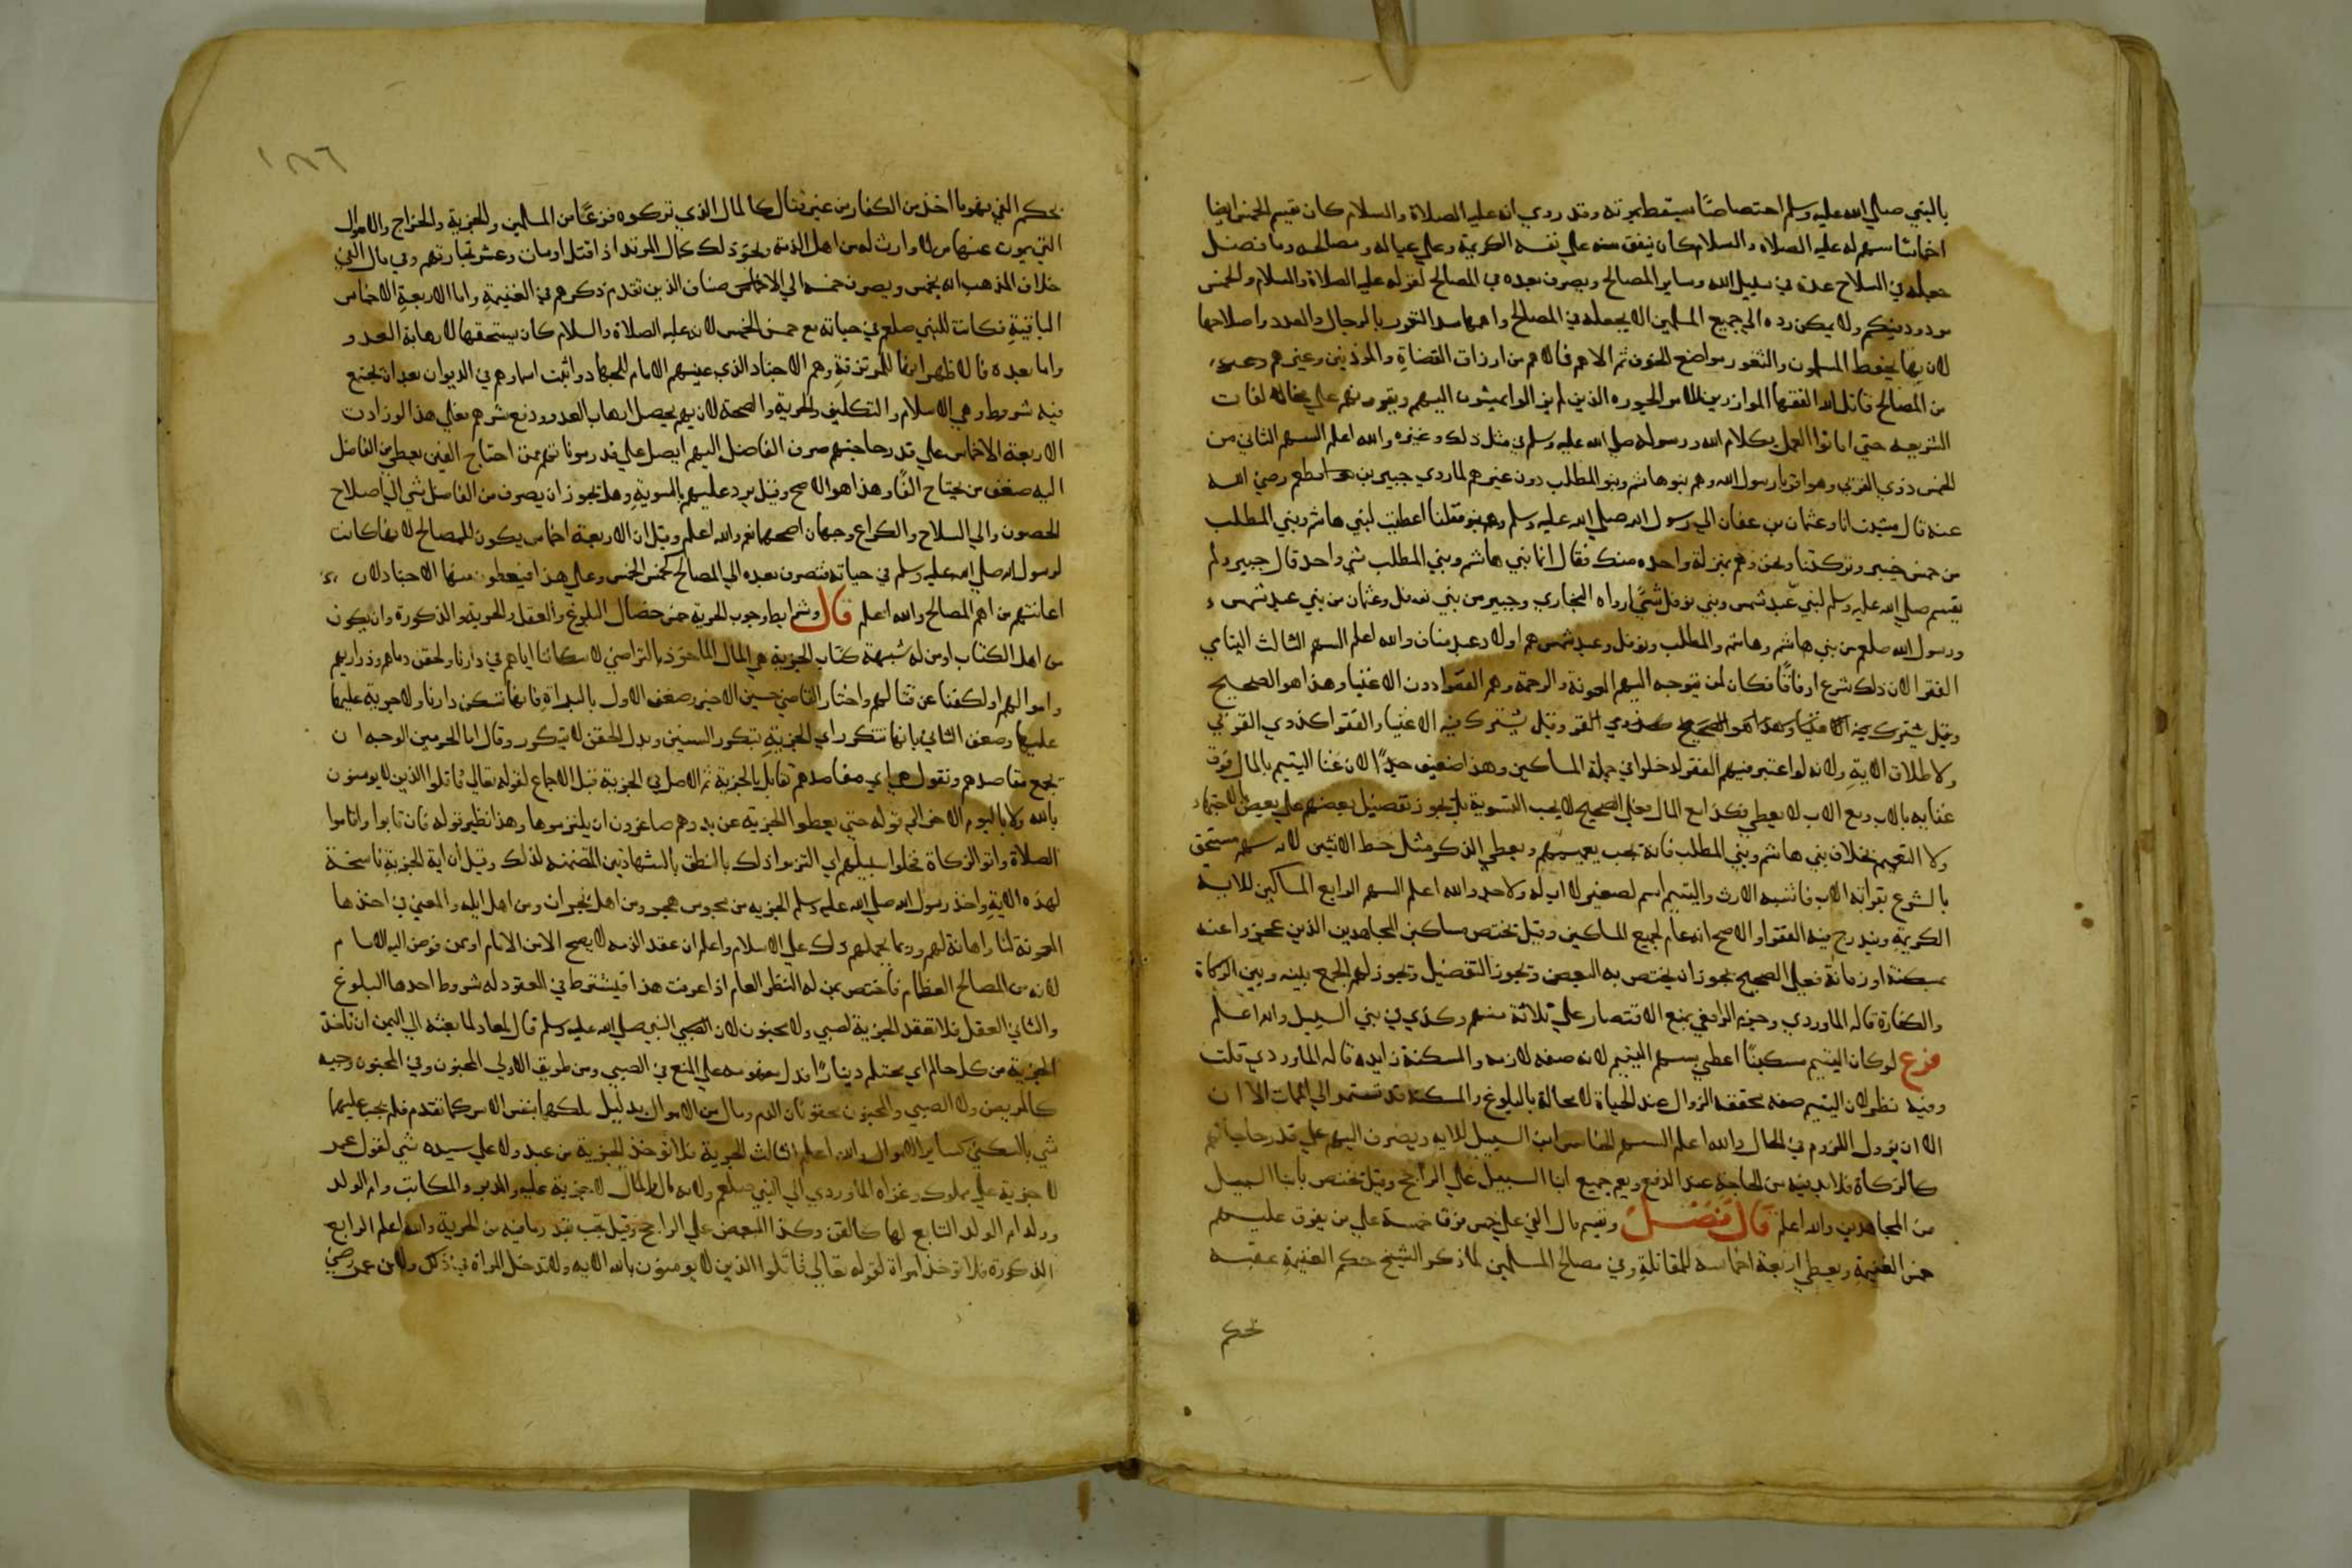 بالنبي صلي الله عليه وسلم اختصاصا سيقط بموته وقد روي انه عليه الصلاة والسلام كان يقسم الخمس ايضا
اخماسا سهم له عليه الصلاة والسلام كان ينفق منه علي نفسه الكريمة وعلي عياله ومصالحه وما فضل
جعله في السلاح عدة في سبيل الله وساير المصالح ويصرف بعده في المصالح لقوله عليه الصلاة والسلام والخمس
مردود فيكم ولا يمكن رده الي جميع المسلمين الا بجعله في المصالح واهمها سد الثغور بالرجال والعدد واصلاحها
لان بها يحفظ المسلمون والثغور مواضع الخوف ثم الاهم فالاهم من ارزاق القضاة والموذنين وغيرهم
من المصالح قاتل الله الفقها الذين لم يزالوا يميثون اليهم
الشريعه حتي اماتوا العمل بكلام الله ورسوله صلي الله عليه وسلم في مثل ذلك وغيره والله اعلم السهم الثاني من
الخمس ذوي القربي وهم اقارب رسول الله وهم بنو هاشم وبنو المطلب دون غيرهم لما روي جبير بن مطعم رضي الله
عنه قال مشيت انا وعثمان بن عفان الي رسول الله صلي الله عليه وسلم فقلنا اعطيت لبني هاشم وبني المطلب
من خمس خيبر وتركتنا ونحن وهم بمنزلة واحده منك فقال انما بني هاشم وبني المطلب شي واحد قال جبير ولم
يقسم صلي الله عليه وسلم لبني عبد شمس وبني نوفل شيًا رواه البخاري وجبير من بني نوفل وعثمان من بني عبد شمس
ورسول الله صلعم من بني هاشم وهاشم والمطلب ونوفل وعبد شمس هم اولاد عبد مناف والله اعلم السهم الثالث اليتامي
الفقرا لان ذلك شرع ارفاقًا فكان لمن يتوجه اليهم المعونة والرحمة وهم الفقرا دون الاغنيا وهذا هو الصحيح
وقيل يشترك فيه الاغنيا وهذا هو الصحيح وقيل يشترك فيه الاغنيا والفقرا كذوي القربي
ولاطلاق الاية ولانه لو اعتبر فيهم الفقر لدخلوا في جملة المساكين وهذا ضعيف جدًا لان غنا اليتيم بالمال فوق
غنايه بالاب ومع الاب لا يعطي فكذا مع المال فعلي الصحيح لا يجب التسوية بل يجوز تفضيل بعضهم علي بعض بالاجتهاد
ولا التعميم بخلاف بني هاشم وبني المطلب فانه يجب تعميمهم ويعطي الذكر مثل حظ الانثيين لانه سهم مستحق
بالشرع بقرابة الاب فاشبه الارث واليتيم اسم لصغير لا اب له ولا جد والله اعلم السهم الرابع المساكين للاية
الكريمة ويندرج فيه الفقرا والاصح انه عام لجميع المساكين وقيل يختص مساكين المجاهدين الذين عجزوا عنه
بمسكنة او زمانة فعلي الصحيح يجوز ان يختص به البعض ويجوز التفضيل ويجوز لهم الجمع بينه وبين الزكاة
والكفارة قاله الماوردي وجزم الرافعي بمنع الاقتصار علي ثلاثة منهم وكذي في بني السبيل والله اعلم
فرع لو كان اليتيم مسكينًا اعطي بسهم اليتيم لانه صفه لازمه والمسكنة زايده قاله الماوردي قلت
وفيه نظر لان اليتيم صفه محققه الزوال عند الحياة لا محالة بالبلوغ والمسكنة قد تستمر الي الممات الا ان
الا ان يول اللزوم في الحال والله اعلم السهم الخامس ابن السبيل للايه ويصرف اليهم علي قدر حاجاتهم
كالزكاة فلا بد فيه من الحاجة عند الدفع ويعم جميع ابنا السبيل علي الراجح وقيل يختص بابنا السبيل
من المجاهدين والله اعلم قال فصل ويقسم مال الفي علي خمس فرق خمسه علي من يفرق عليهم
خمس الغنيمة ويعطي اربعة اخماسه للمقاتلة وفي مصالح المسلمين لما ذكر الشيخ حكم الغنيمة عقبه
بحكم
١٨٦
بحكم الفي فهو ما اخذ من الكفار من غير قتال كالمال الذي تركوه فزعًا من المسلمين والجزية والخراج والاموال
التي يموت عنها من لا وارث له من اهل الذمة ونحو ذلك كمال المرتد اذا قتل او مات وعشر تجارتهم وفي مال الفي
خلاف المذهب انه يخمس ويصرف خمسه الي الاصناف الذين تقدم ذكرهم في الغنيمة واما الاربعة الاخماس
الباقية فكانت للنبي صلعم في حياته مع خمس الخمس لانه عليه الصلاة والسلام كان يستحقها لارهابة العدو
واما بعده فالاظهر انها للمرتزقة وهم الاجناد الذي عينهم الامام للجهاد واثبت اسماوهم في الديوان بعد ان تجتمع
فيه شروط وهي الاسلام والتكليف والحرية والصحة لان بهم يحصل ارهاب العدو ودفع شرهم فعلي هذا لو زادت
الاربعة الاخماس علي قدر حاجتهم صرف الفاضل اليهم ايصل علي قدر مونتهم فمن احتاج الفين يعطي من الفاضل
اليه ضعف من يحتاج الفًا وهذا هو الاصح وقيل يرد عليهم بالسوية وهل يجوز ان يصرف من الفاضل شي الي اصلاح
الحصون والي السلاح والكراع وجهان اصحهما نعم والله اعلم وقيل ان الاربعة اخماس يكون للمصالح لانها كانت
لرسول الله صلي الله عليه وسلم في حياته فتصرف بعده الي المصالح كخمس الخمس وعلي هذا فيعطون منها الاجناد لان
اعانتهم من اهم المصالح والله اعلم قال وشرايط وجوب الجزية خمس خصال البلوغ والعقل والحرية والذكورة وان يكون
من اهل الكتاب او من له شبهة كتاب الجزية هي المال الماخوذ بالتراضي لاسكاننا اياهم في دارنا ولحقن دماهم وذراريهم
واموالهم او لكفنا عن قتالهم واختار القاضي حسين الاخير وضعف الاول بالمراة فانها تسكن دارنا ولا جزية عليها
عليها وضعف الثاني بانها تتكرر اي الجزية بتكرر السنين وبدل الحقن لا يتكرر وقال امام الحرمين الوجه ان
يجمع مقاصدهم ونقول هي اي مقاصدهم تقابل بالجزية ثم الاصل في الجزية قبل الاجماع لقوله تعالي قاتلوا الذين لا يومنون
بالله ولا باليوم الاخر الي قوله حتي يعطوا الجزية عن يد وهم صاغرون ان يلتزموها وهذا نظير قوله فان تابوا واقاموا
الصلاة واتوا الزكاة فخلوا سبيلهم اي التزموا ذلك بالنطق بالشهادتين المتضمنه لذلك وقيل ان اية الجزية ناسخة
لهذه الاية واخذ رسول الله صلي الله عليه وسلم الجزيه من مجوس هجر ومن اهل نجران ومن اهل ايله والمعني في اخذها
المعونة لنا واهانة لهم وربما يحملهم ذلك علي الاسلام واعلم ان عقد الذمه لا يصح الا من الامام او ممن فوض اليه الامام
لانه من المصالح العظام فاختص بمن له النظر العام اذا عرفت هذا فيشترط في المعقود له شروط احدها البلوغ
والثاني العقل فلا تعقد الجزية لصبي ولا مجنون لان النبي صلي الله عليه وسلم قال لمعاد لما بعثه الي اليمن ان تاخذ
الجزية من كل حالم اي محتلم دينارًا فدل مفهومه علي المنع في الصبي ومن طريق الاولي المجنون وفي المجنون وجه
كالمريض ولان الصبي والمجنون محقونان الدم ومال من الاموال بدليل ملكهما بنفس الاسر كما تقدم فلم يجب عليهما
شي بالسكني كساير الاموال والله اعلم الثالث الحرية فلا توخذ الجزية من عبد ولا علي سيده شي لقول عمر
لا جزية علي مملوك وعزاه الماوردي الي النبي صلعم ولانه مال والمال لا جزية عليه والمدبر والمكاتب وام الولد
وولد ام الولد التابع لها كالقن وكذا المبعض علي الراجح وقيل يجب بقدر ما فيه من الحرية والله اعلم الرابع
الذكورة فلا توخذ امراة لقوله تعالي قاتلوا الذين لا يومنون بالله الايه ولا تدخل المراة في ذلك ولان عمر رضي